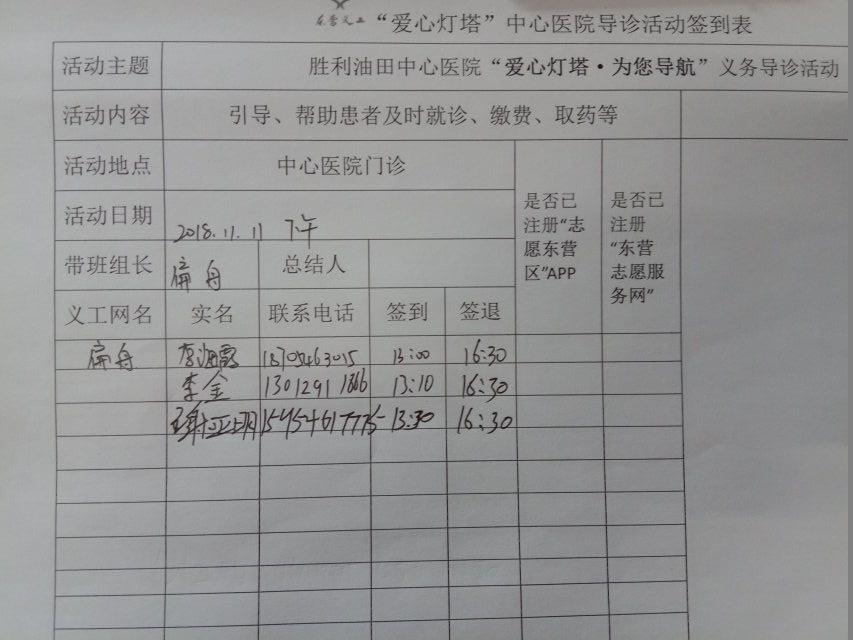 东营义工 “爱心灯塔”中心医院导诊活动签到表
活动主题 胜利油田中心医院“爱心灯塔·为您导航”义务导诊活动
活动内容 引导、帮助患者及时就诊、缴费、取药等
活动地点 中心医院门诊
是否已注册“志愿东营区”APP
是否已注册“东营志愿服务网”
活动日期 2018.11.11 下午
带班组长 扁舟 总结人
义工网名 实名 联系电话 签到 签退
扁舟 18705463015 13:00 16:30
李金 13012911866 13:10 16:30
13:30 16:30